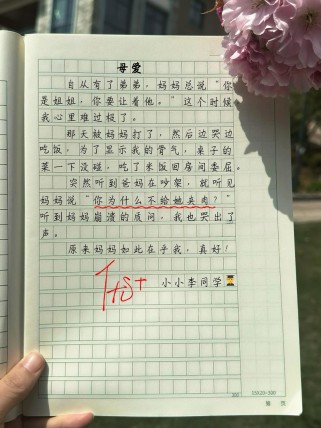 母爱
自从有了弟弟，妈妈总说“你
是姐姐，你要让着他。”这个时候
我心里难过极了。
那天被妈妈打了，然后边哭边
吃饭，为了显示我的骨气，桌子的
菜一下没碰，吃了米饭回房间委屈。
突然听到爸妈在吵架，就听见
妈妈说“你为什么不给她夹肉？”
听到妈妈崩溃的质问，我也哭出了
声。
原来妈妈如此在乎我，真好！
小小李同学
300
15X20=300
第 页